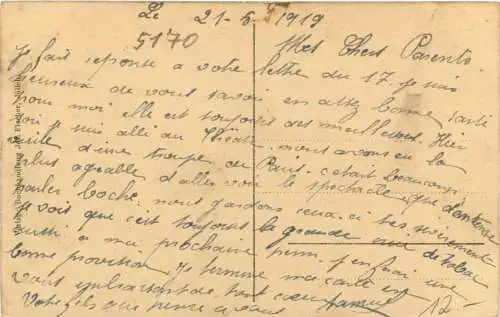 Le 21-5 1919
5170
Mes Chers Parents
Je fait reponse a votre lettre du 17. Je suis
heureux de vous savoir en assez bonne santé
pour moi elle est toujours des meilleures. Hier
soir je suis allé au Théatre nous avons eu la
visite d'une troupe de Paris. cetait beaucoup
plus agreable d'aller voir le spectacle que d'entendre
parler boche. nous gardons ceux ci tres
Je vois que c'est toujours la grande de tabac
aussi a ma prochaine perm. j'en ferai une
bonne provision. Je termine ma carte en
vous embrassant de tout coeur
Votre fils qui pense a vous
12.-